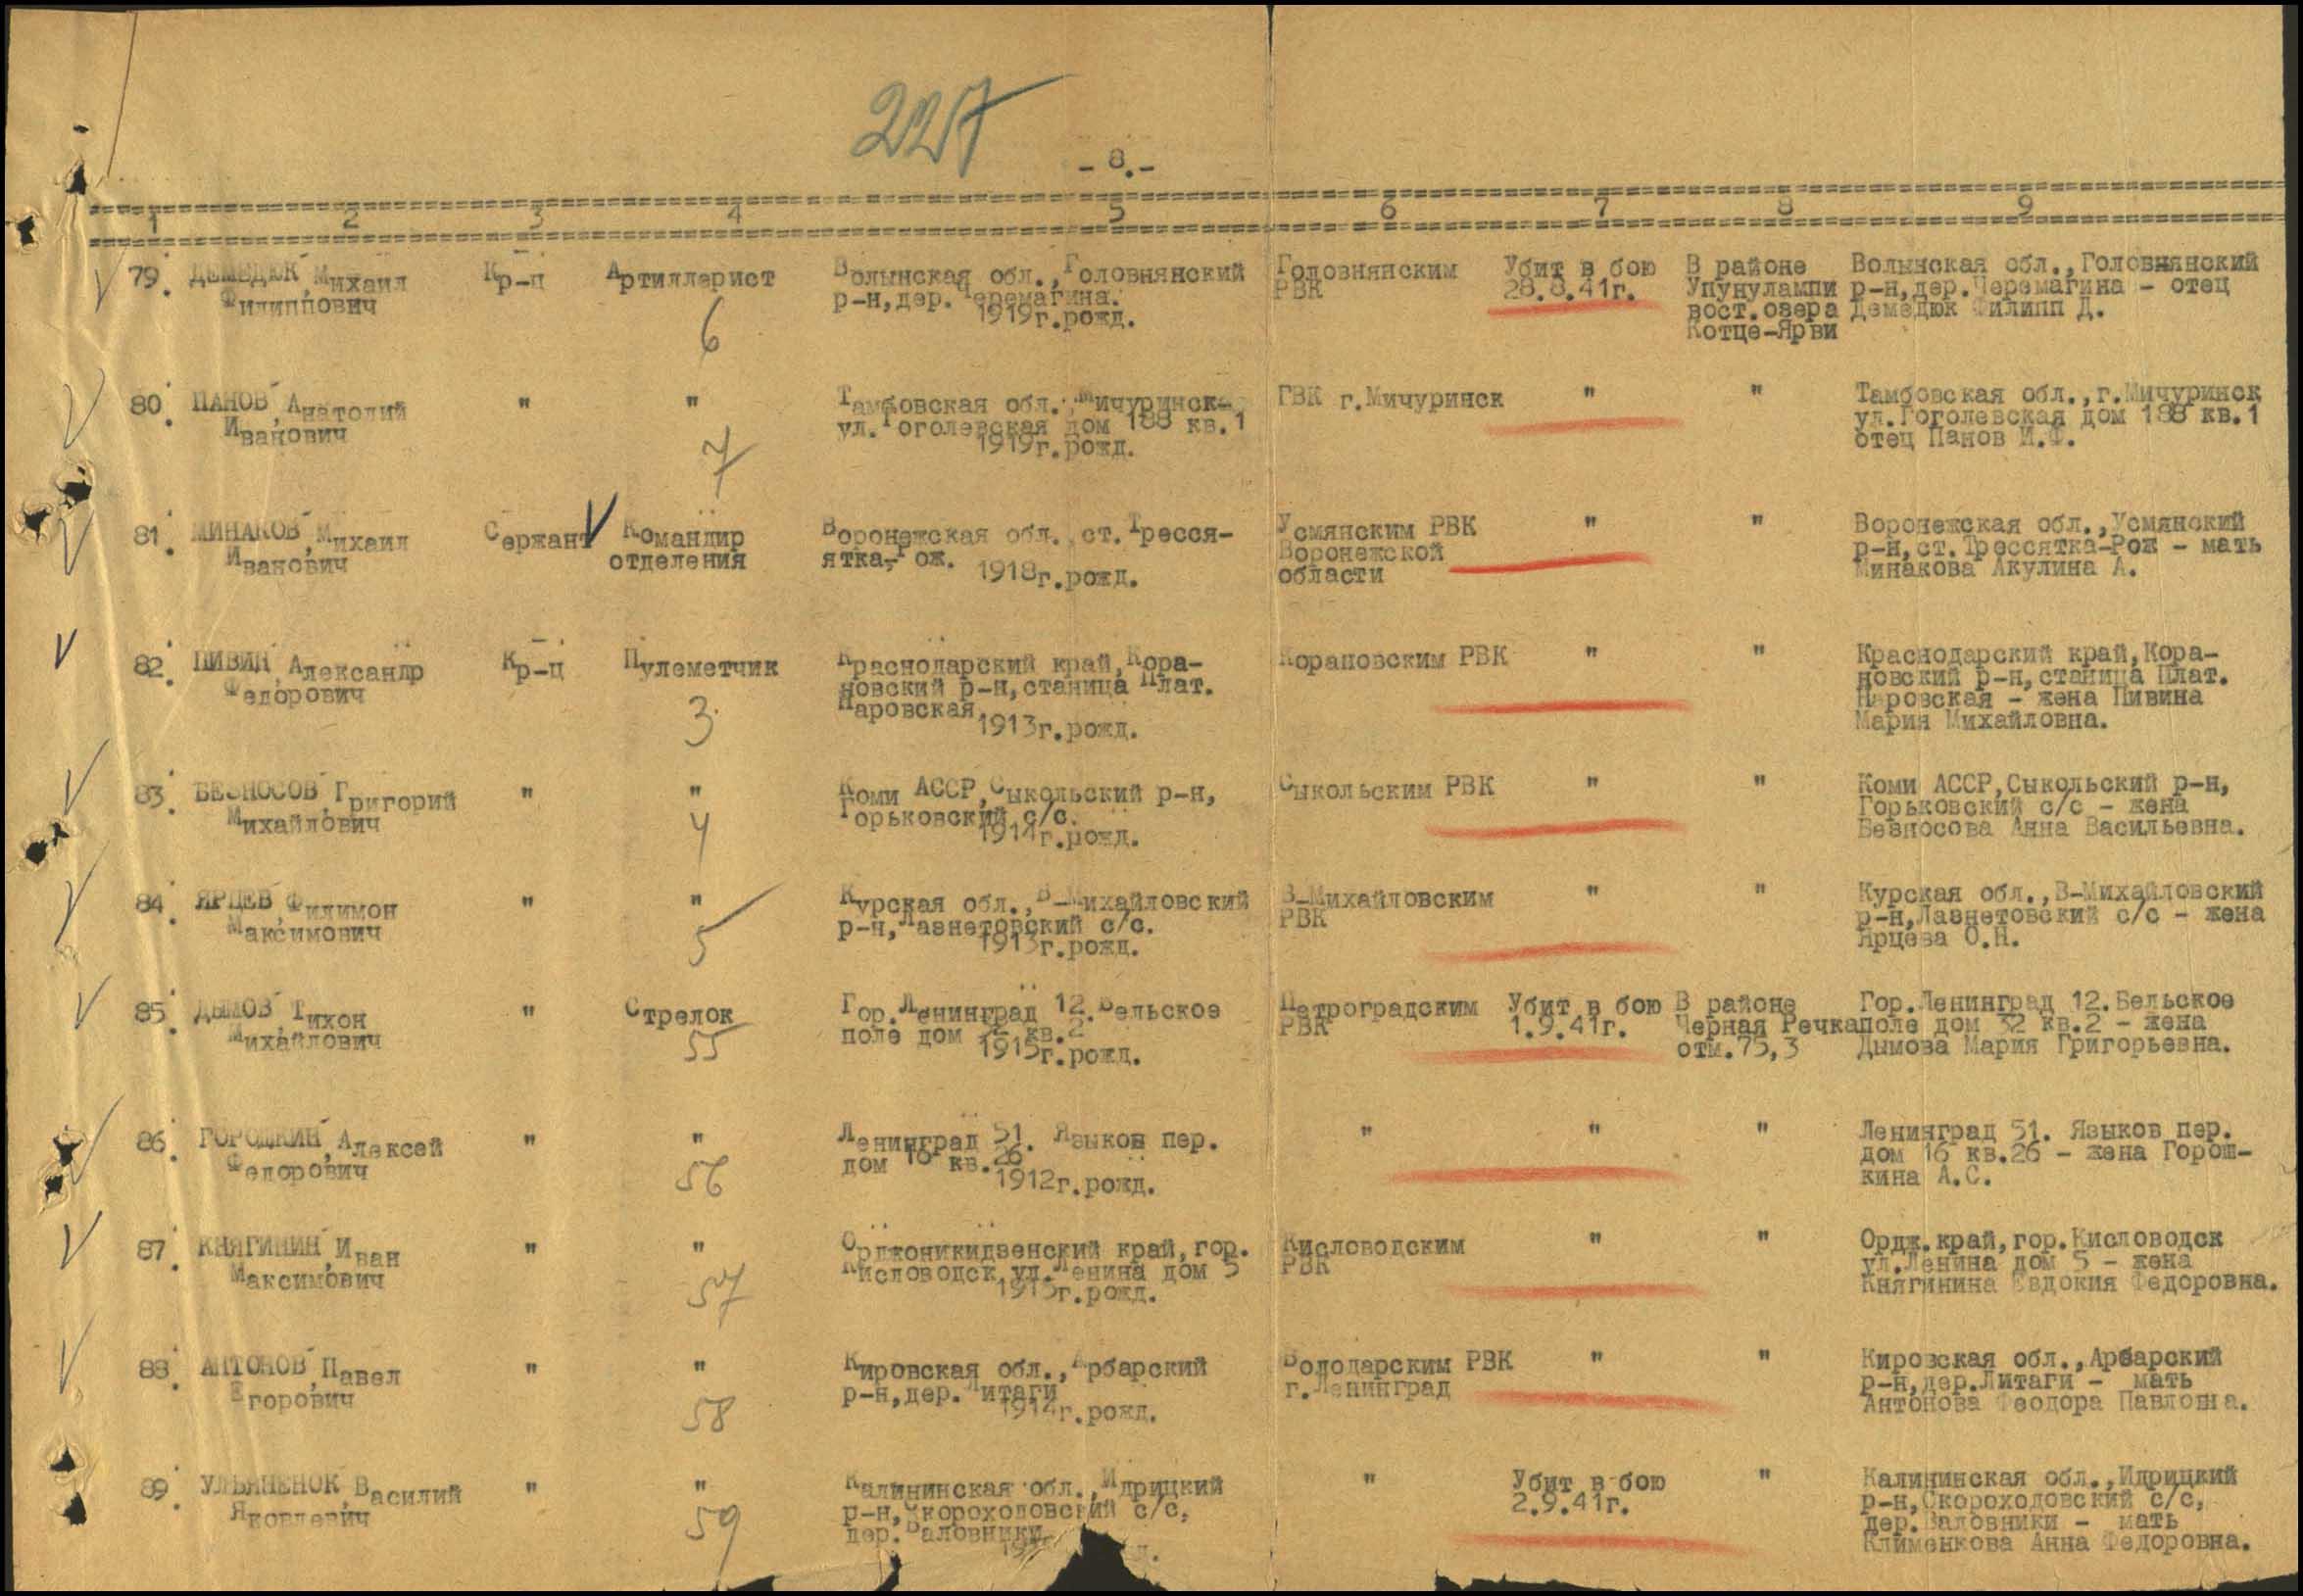 227
- 8.-
1 2 3 4 5 6 7 8 9
79. ДЕМЕДЮК Михаил Кр-ц Артиллерист Волынская обл., Головнянский Головнянским Убит в бою В районе Волынская обл., Головнянский
Филиппович р-н, дер. Черемагина. РВК 28.8.41г. Упунулампи р-н, дер. Черемагина - отец
6 1919г.рожд. вост. озера Демедюк Филипп Д.
Котце-Ярви
80. ПАНОВ Анатолий " " Тамбовская обл., Мичуринск- ГВК г.Мичуринск " " Тамбовская обл., г.Мичуринск
Иванович ул. Гоголевская дом 188 кв.1 ул.Гоголевская дом 188 кв.1
7 1919г.рожд. отец Панов И.Ф.
81. МИНАКОВ Михаил Сержант V Командир Воронежская обл. ст. Тресся- Усмянским РВК " " Воронежская обл., Усмянский
Иванович отделения ятка-Рож. Воронежской р-н, ст. Трессятка-Рож - мать
1918г.рожд. области Минакова Акулина А.
82. ПИВИН Александр Кр-ц Пулеметчик Краснодарский край, Кора- Корановским РВК " " Краснодарский край, Кора-
Федорович новский р-н, станица Плат. новский р-н, станица Плат.
3 Наровская Наровская - жена Пивина
1913г.рожд. Мария Михайловна.
83. БЕЗНОСОВ Григорий " " Коми АССР, Сыкольский р-н, Сыкольским РВК " " Коми АССР, Сыкольский р-н,
Михайлович 4 Горьковский с/с. Горьковский с/с - жена
1914г.рожд. Безносова Анна Васильевна.
84. ЯРЦЕВ Филимон " " Курская обл., В-Михайловский В-Михайловским " " Курская обл., В-Михайловский
Максимович 5 р-н, Лазнетовский с/с. РВК р-н, Лазнетовский с/с - жена
1913г.рожд. Ярцева О.Н.
85. ДЫМОВ Тихон " Стрелок Гор. Ленинград 12. Бельское Петроградским Убит в бою В районе Гор. Ленинград 12. Бельское
Михайлович 55 поле дом 32 кв.2 РВК 1.9.41г. Черная Речка поле дом 32 кв.2 - жена
1915г.рожд. отм.75,3 Дымова Мария Григорьевна.
86. ГОРОШКИН Алексей " " Ленинград 51. Языков пер. " " " Ленинград 51. Языков пер.
Федорович 56 дом 16 кв.26 дом 16 кв.26 - жена Горош-
1912г.рожд. кина А.С.
87. КНЯГИНИН Иван " " Орджоникидзенский край, гор. Кисловодским " " Ордж.край, гор.Кисловодск
Максимович 57 Кисловодск ул. Ленина дом 5 РВК ул.Ленина дом 5 - жена
г.рожд. Княгинина Евдокия Федоровна.
88. АНТОНОВ Павел " " Кировская обл., Арбарский Володарским РВК " " Кировская обл., Арбарский
Егорович 58 р-н, дер. Литаги г.Ленинград р-н, дер.Литаги - мать
1914г.рожд. Антонова Феодора Павловна.
89. УЛЬЯНЕНОК Василий " " Калининская обл. Идрицкий " Убит в бою " Калининская обл., Идрицкий
Яковлевич 59 р-н, Скороходовский с/с, 2.9.41г. р-н, Скороходовский с/с,
дер. Валовники дер. Валовники - мать
Клименкова Анна Федоровна.